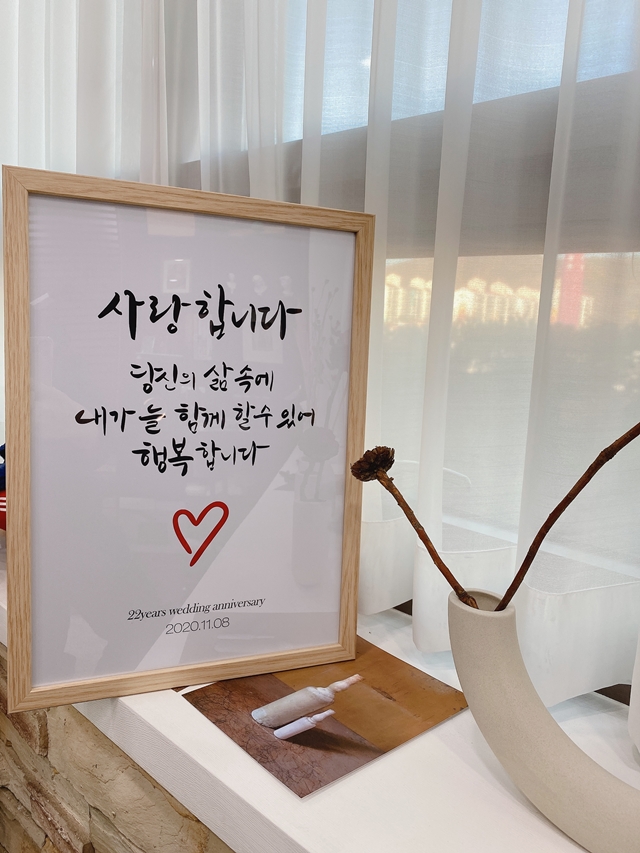 사랑합니다
당신의 삶 속에
내가 늘 함께 할 수 있어
행복합니다
22years wedding anniversary
2020.11.08